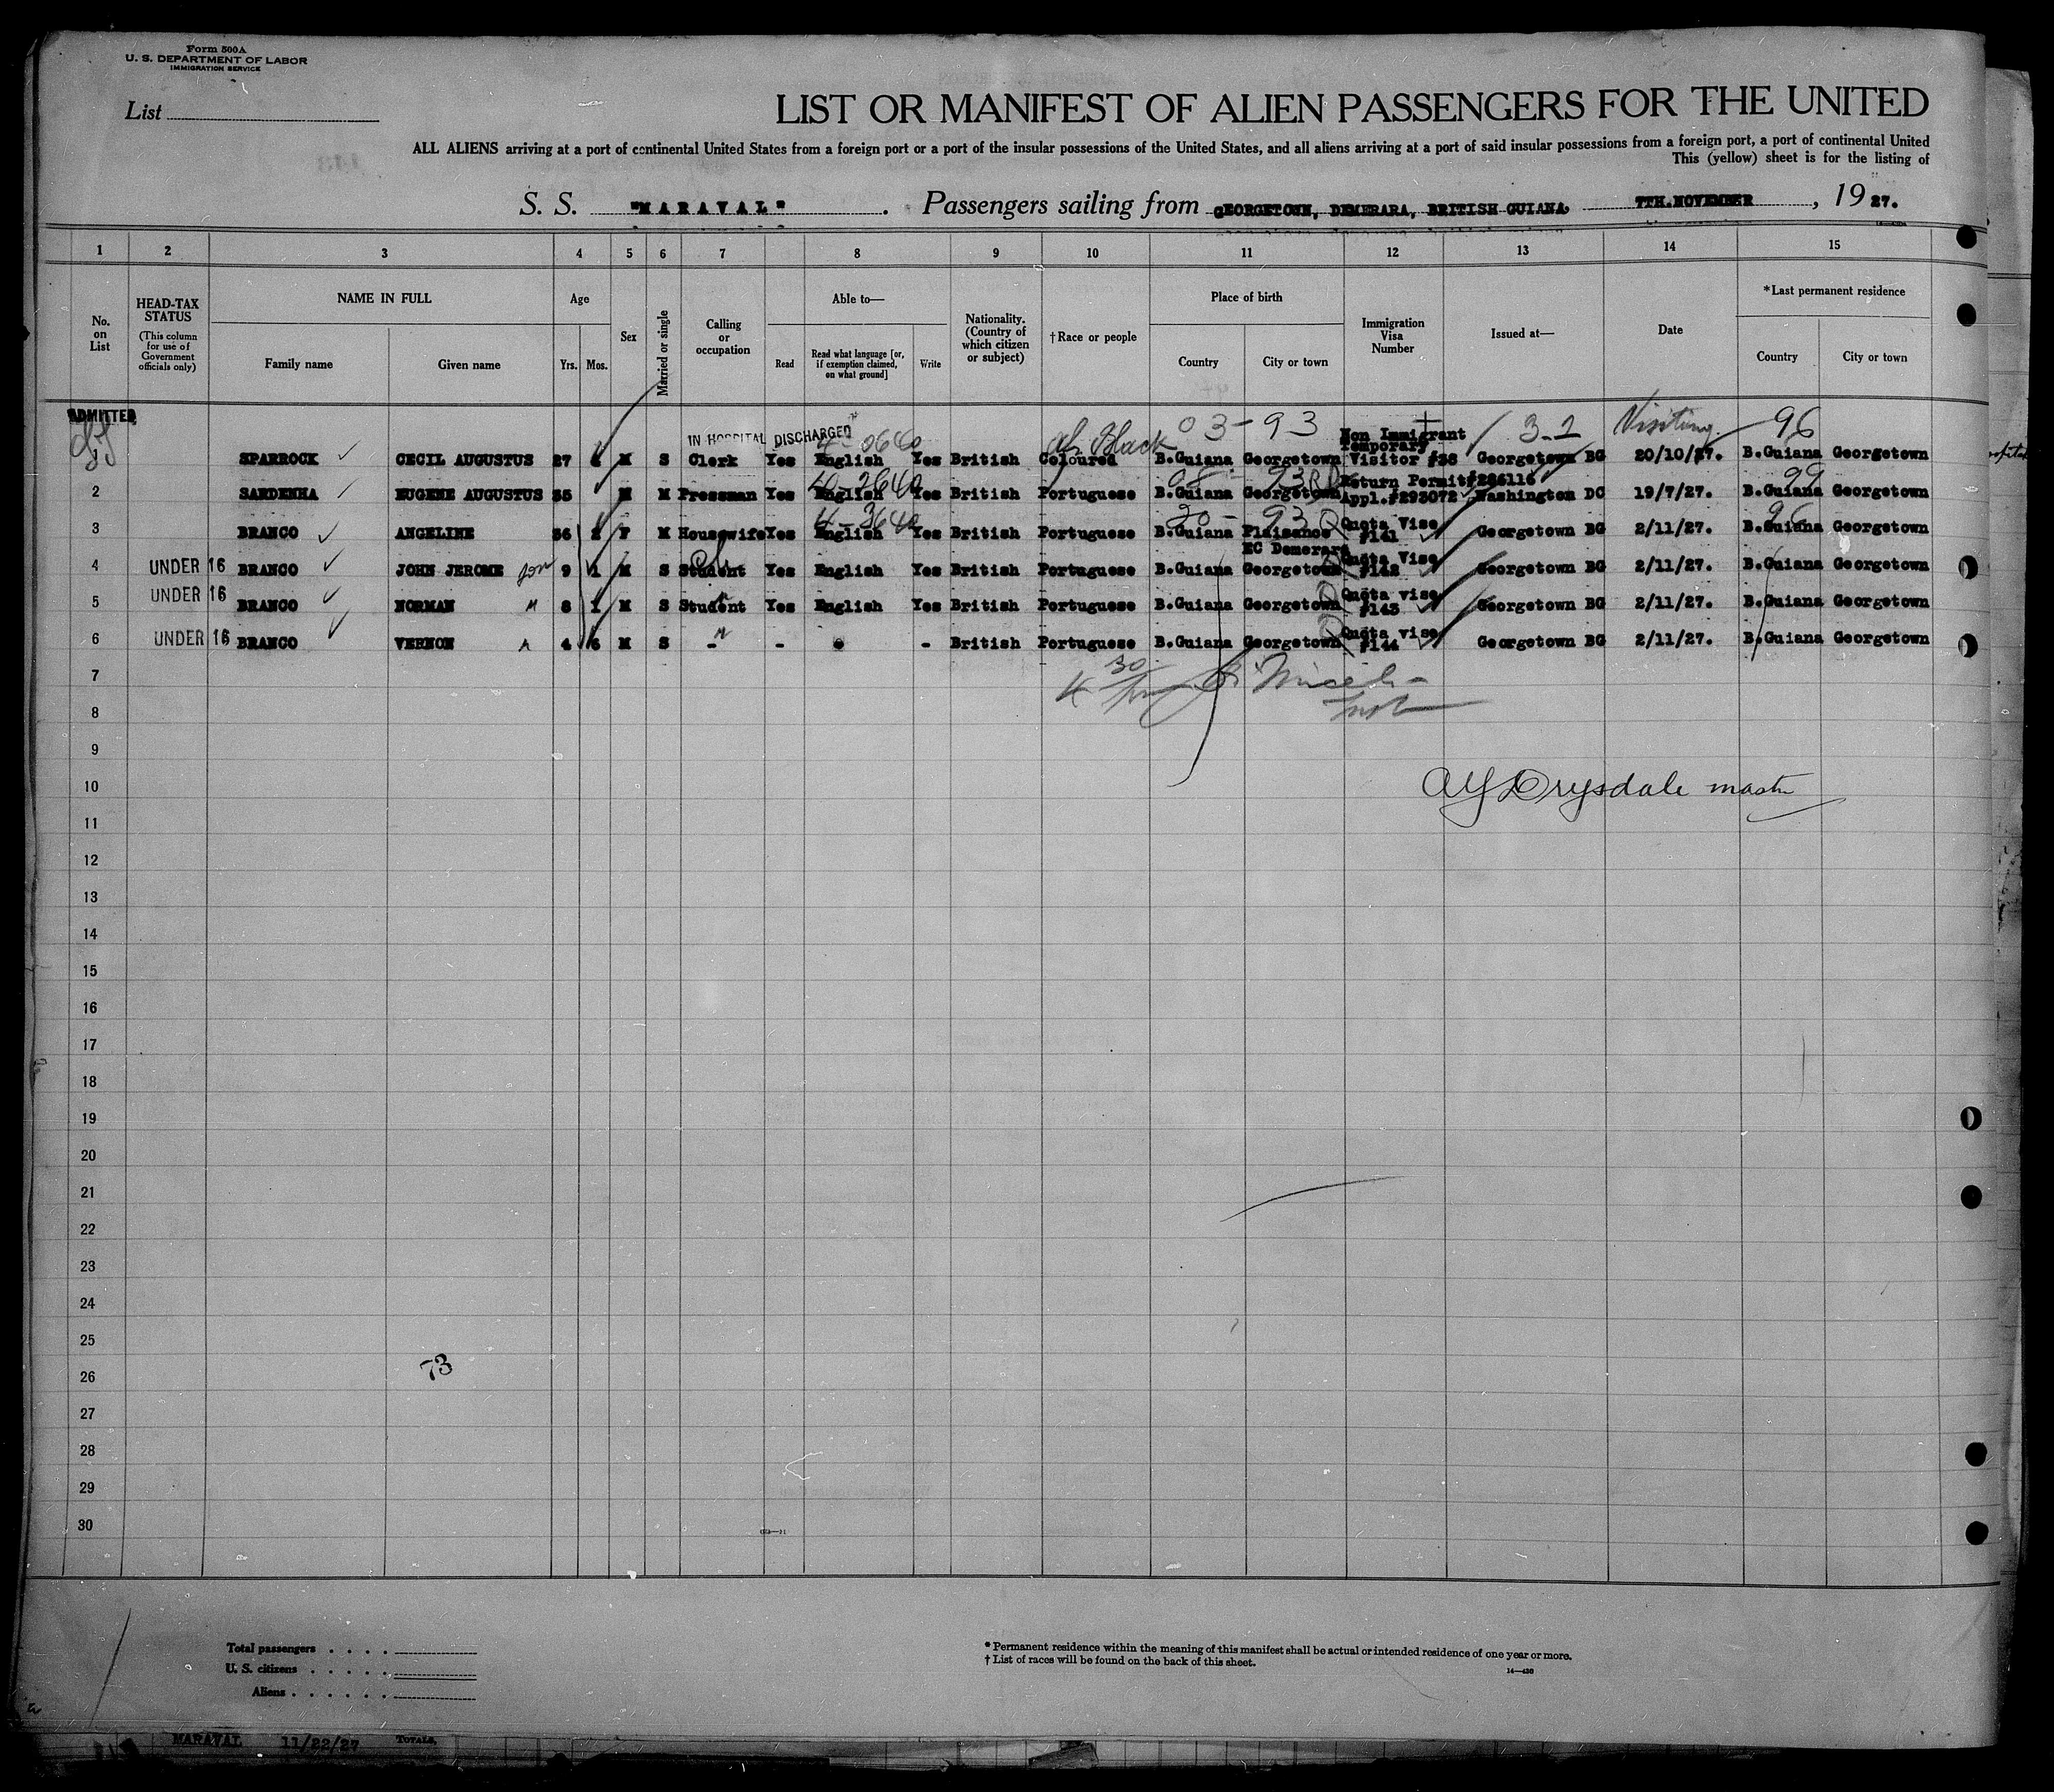 Form 500A
U. S. DEPARTMENT OF LABOR
IMMIGRATION SERVICE
List
LIST OR MANIFEST OF ALIEN PASSENGERS FOR THE UNITED
ALL ALIENS arriving at a port of continental United States from a foreign port or a port of the insular possessions of the United States, and all aliens arriving at a port of said insular possessions from a foreign port, a port of continental United
This (yellow) sheet is for the listing of
S. S. "MARAVAL". Passengers sailing from GEORGETOWN, DEMERARA, BRITISH GUIANA, 7TH.NOVEMBER, 1927.
1 2 3 4 5 6 7 8 9 10 11 12 13 14 15
No. on List
HEAD-TAX STATUS (This column for use of Government officials only)
NAME IN FULL Family name Given name
Age Yrs. Mos.
Sex
Married or single
Calling or occupation
Able to— Read Read what language [or, if exemption claimed, on what ground] Write
Nationality. (Country of which citizen or subject)
†Race or people
Place of birth Country City or town
Immigration Visa Number
Issued at—
Date
*Last permanent residence Country City or town
ADMITTED
IN HOSPITAL DISCHARGED 4-0640 Black 03-93 3-2 Visiting 96
SPARROCK CECIL AUGUSTUS 27 M S Clerk Yes English Yes British Coloured B.Guiana Georgetown Non Immigrant Temporary Visitor #38 Georgetown BG 20/10/27. B.Guiana Georgetown
2 SARDENHA EUGENE AUGUSTUS 35 M M Pressman Yes English Yes British Portuguese B.Guiana Georgetown Return Permit#286116 Appl.#293072 Washington DC 19/7/27. B.Guiana Georgetown 99
3 BRANCO ANGELINE 36 2 F M Housewife Yes English Yes British Portuguese B.Guiana Plaisance EC Demerara Quota Vise #141 Georgetown BG 2/11/27. B.Guiana Georgetown
4 UNDER 16 BRANCO JOHN JEROME son 9 1 M S Student Yes English Yes British Portuguese B.Guiana Georgetown Quota Vise #142 Georgetown BG 2/11/27. B.Guiana Georgetown
5 UNDER 16 BRANCO NORMAN " 8 1 M S Student Yes English Yes British Portuguese B.Guiana Georgetown Quota vise #143 Georgetown BG 2/11/27. B.Guiana Georgetown
6 UNDER 16 BRANCO VERNON " 4 6 M S - - - British Portuguese B.Guiana Georgetown Quota vise #144 Georgetown BG 2/11/27. B.Guiana Georgetown
7
8
9
10 AY Drysdale master
11
12
13
14
15
16
17
18
19
20
21
22
23
24
25
26 73
27
28
29
30
Total passengers
U. S. citizens
Aliens
* Permanent residence within the meaning of this manifest shall be actual or intended residence of one year or more.
† List of races will be found on the back of this sheet.
14—430
MARAVAL 11/22/27 TOTALS,